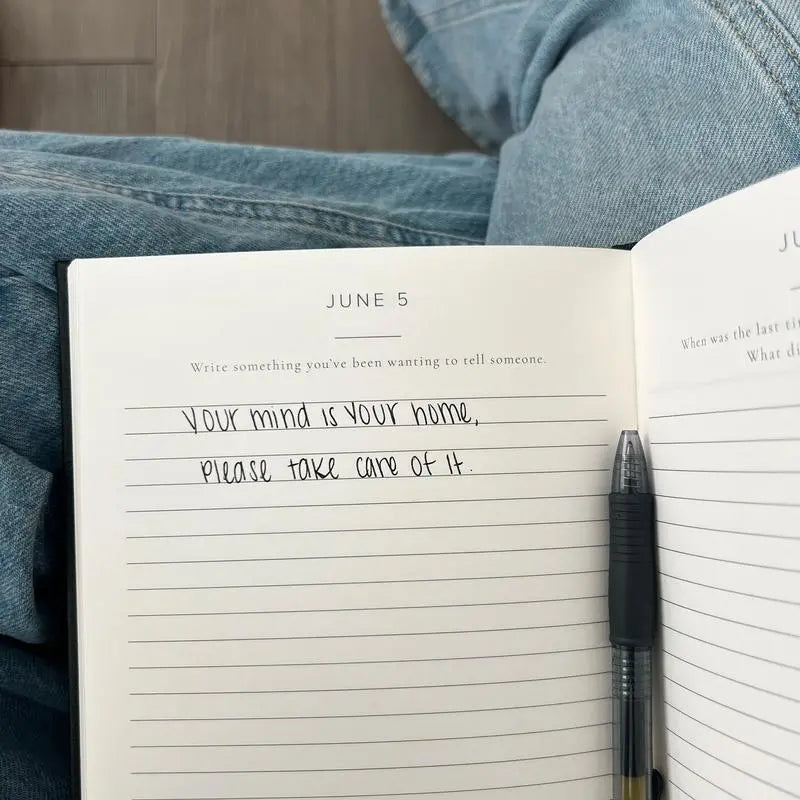 JUNE 5
Write something you've been wanting to tell someone.
Your mind is your home,
please take care of it.
JU
When was the last ti
What di